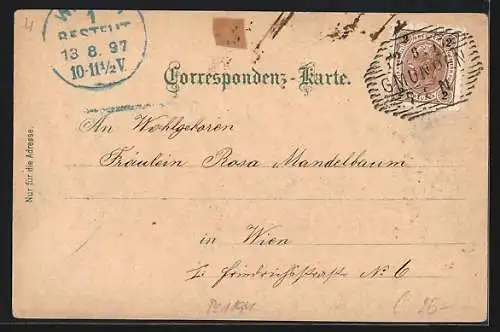 4
W
1
BESTELLT
13 8. 97
10-11½V.
Correspondenz-Karte.
GMUND
An Wohlgeboren
Fräulein Rosa Mandelbaum
in Wien
I. Friedrichstraße No 6
Nur für die Adresse.